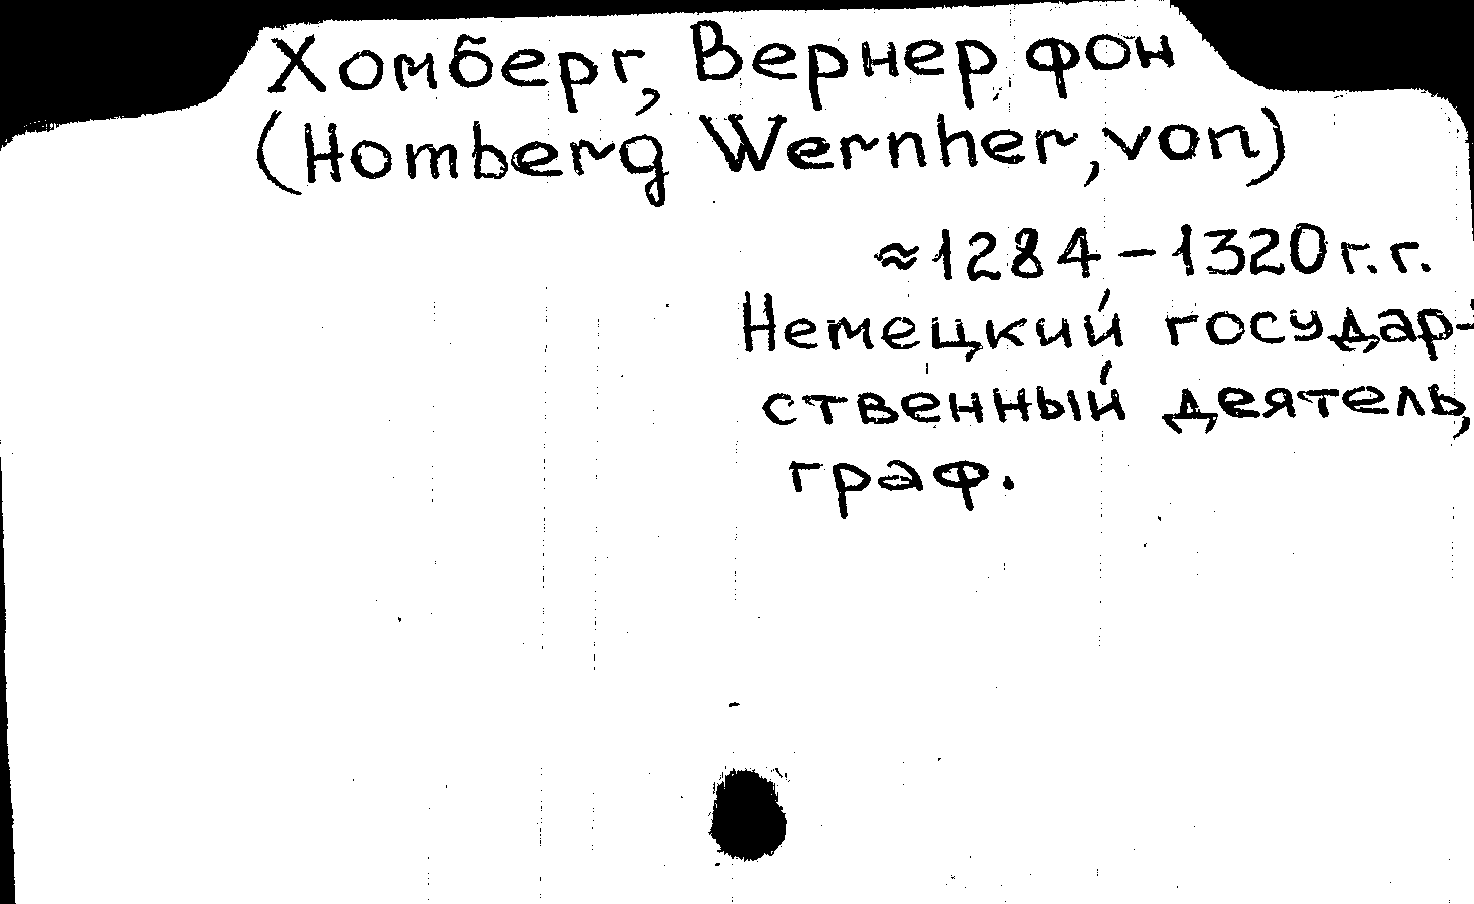 Хомберг, Вернер фон
(Homberg Wernher, von)
≈1284-1320 г.г.
Немецкий государ-
ственный деятель,
граф.